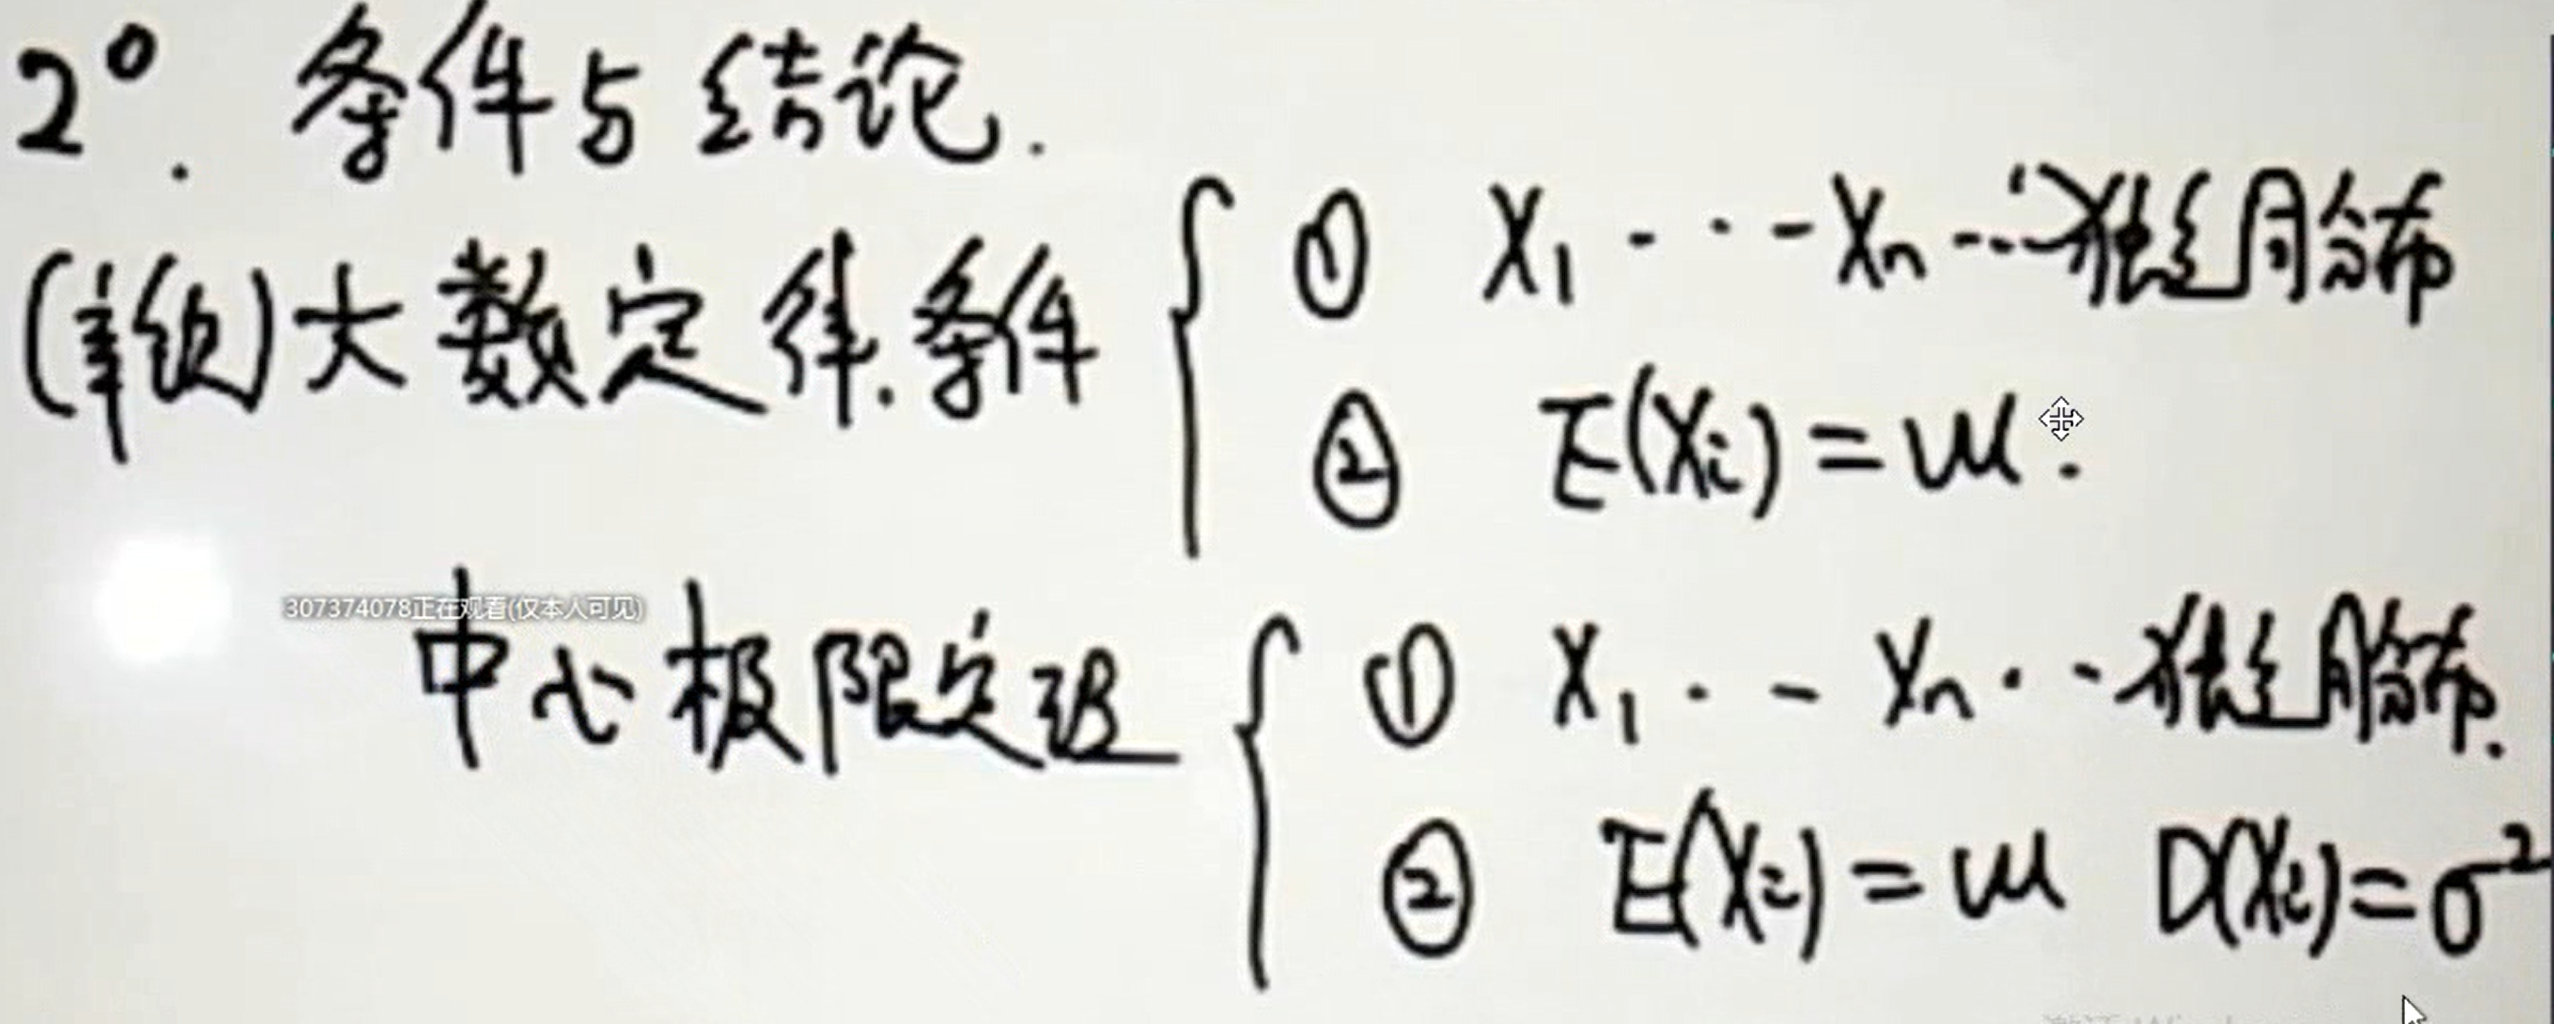 2°. 条件与结论.
(辛钦)大数定律.条件 { ① X₁ - · · - Xₙ -··· 独立同分布
② E(Xi) = μ.
307374078正在观看(仅本人可见)
中心极限定理 { ① X₁ · · - Xₙ · · - 独立同分布.
② E(Xi) = μ D(Xi) = σ²